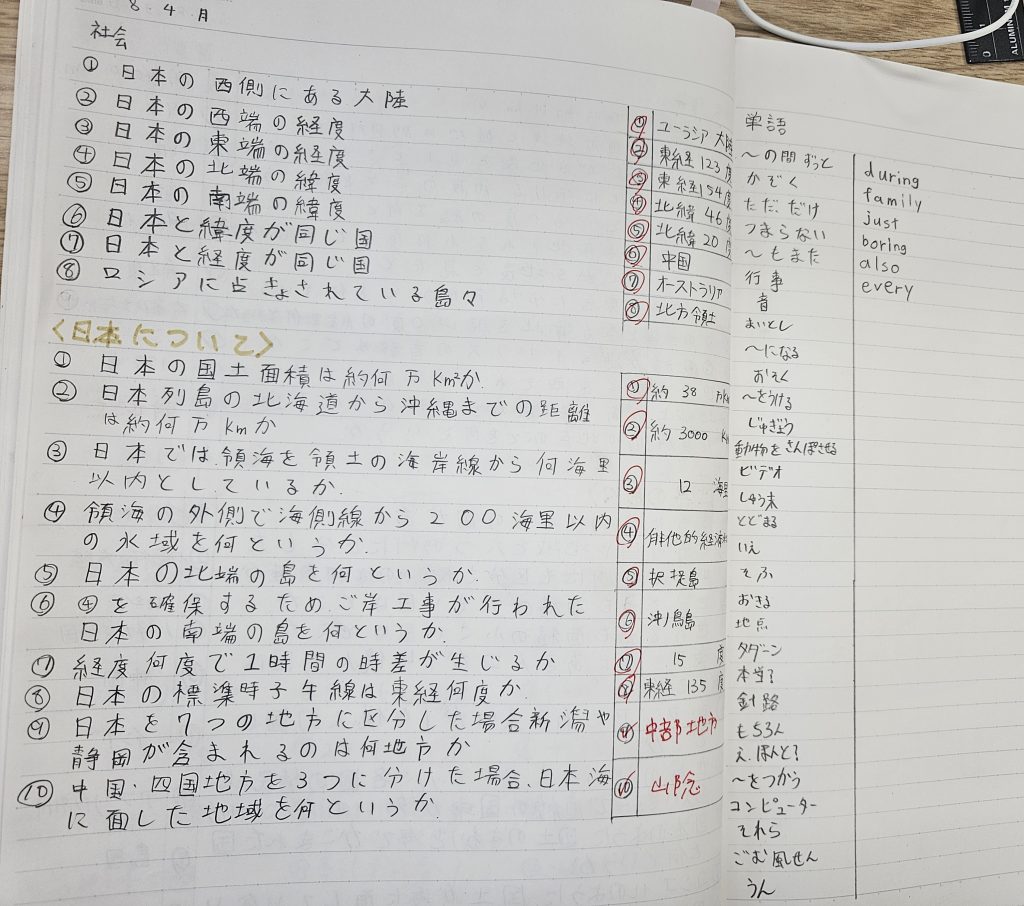 8 4 月
社会
① 日本の西側にある大陸
② 日本の西端の経度
③ 日本の東端の経度
④ 日本の北端の緯度
⑤ 日本の南端の緯度
⑥ 日本と緯度が同じ国
⑦ 日本と経度が同じ国
⑧ ロシアに占きょされている島々
① ユーラシア大陸
② 東経123度
③ 東経154度
④ 北緯46度
⑤ 北緯20度
⑥ 中国
⑦ オーストラリア
⑧ 北方領土
〈日本について〉
① 日本の国土面積は約何万km²か.
② 日本列島の北海道から沖縄までの距離
は約何万kmか
③ 日本では領海を領土の海岸線から何海里
以内としているか.
④ 領海の外側で海側線から200海里以内
の水域を何というか.
⑤ 日本の北端の島を何というか.
⑥ ④を確保するため、ご岸工事が行われた
日本の南端の島を何というか.
⑦ 経度何度で1時間の時差が生じるか
⑧ 日本の標準時子午線は東経何度か.
⑨ 日本を7つの地方に区分した場合新潟や
静岡が含まれるのは何地方か
⑩ 中国・四国地方を3つに分けた場合、日本海
に面した地域を何というか.
① 約38万km
② 約3000 k
③ 12 海里
④ 排他的経済
⑤ 択捉島
⑥ 沖ノ鳥島
⑦ 15度
⑧ 東経135度
⑨ 中部地方
⑩ 山陰
単語
〜の間ずっと during
かぞく family
ただ、だけ just
つまらない boring
〜もまた also
行事 every
音
まいとし
〜になる
おえく
〜をうける
じゅぎょう
動物をさんぽさせる
ビデオ
しゅう末
とどまる
いえ
そふ
おきる
地点
タダーン
本当?
針路
もちろん
え、ほんと?
〜をつかう
コンピューター
それら
ごむ風せん
うん